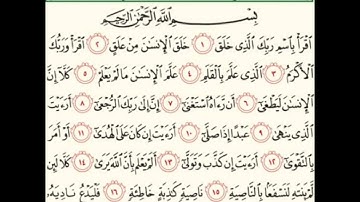 بِسْمِ اللَّهِ الرَّحْمَٰنِ الرَّحِيمِ
اقْرَأْ بِاسْمِ رَبِّكَ الَّذِي خَلَقَ ١ خَلَقَ الْإِنسَٰنَ مِنْ عَلَقٍ ٢ اقْرَأْ وَرَبُّكَ
الْأَكْرَمُ ٣ الَّذِي عَلَّمَ بِالْقَلَمِ ٤ عَلَّمَ الْإِنسَٰنَ مَا لَمْ يَعْلَمْ ٥ كَلَّا إِنَّ
الْإِنسَٰنَ لَيَطْغَىٰ ٦ أَن رَّءَاهُ اسْتَغْنَىٰ ٧ إِنَّ إِلَىٰ رَبِّكَ الرُّجْعَىٰ ٨ أَرَءَيْتَ
الَّذِي يَنْهَىٰ ٩ عَبْدًا إِذَا صَلَّىٰ ١٠ أَرَءَيْتَ إِن كَانَ عَلَى الْهُدَىٰ ١١ أَوْ أَمَرَ
بِالتَّقْوَىٰ ١٢ أَرَءَيْتَ إِن كَذَّبَ وَتَوَلَّىٰ ١٣ أَلَمْ يَعْلَم بِأَنَّ اللَّهَ يَرَىٰ ١٤ كَلَّا لَئِن
لَّمْ يَنتَهِ لَنَسْفَعًا بِالنَّاصِيَةِ ١٥ نَاصِيَةٍ كَٰذِبَةٍ خَاطِئَةٍ ١٦ فَلْيَدْعُ نَادِيَهُ